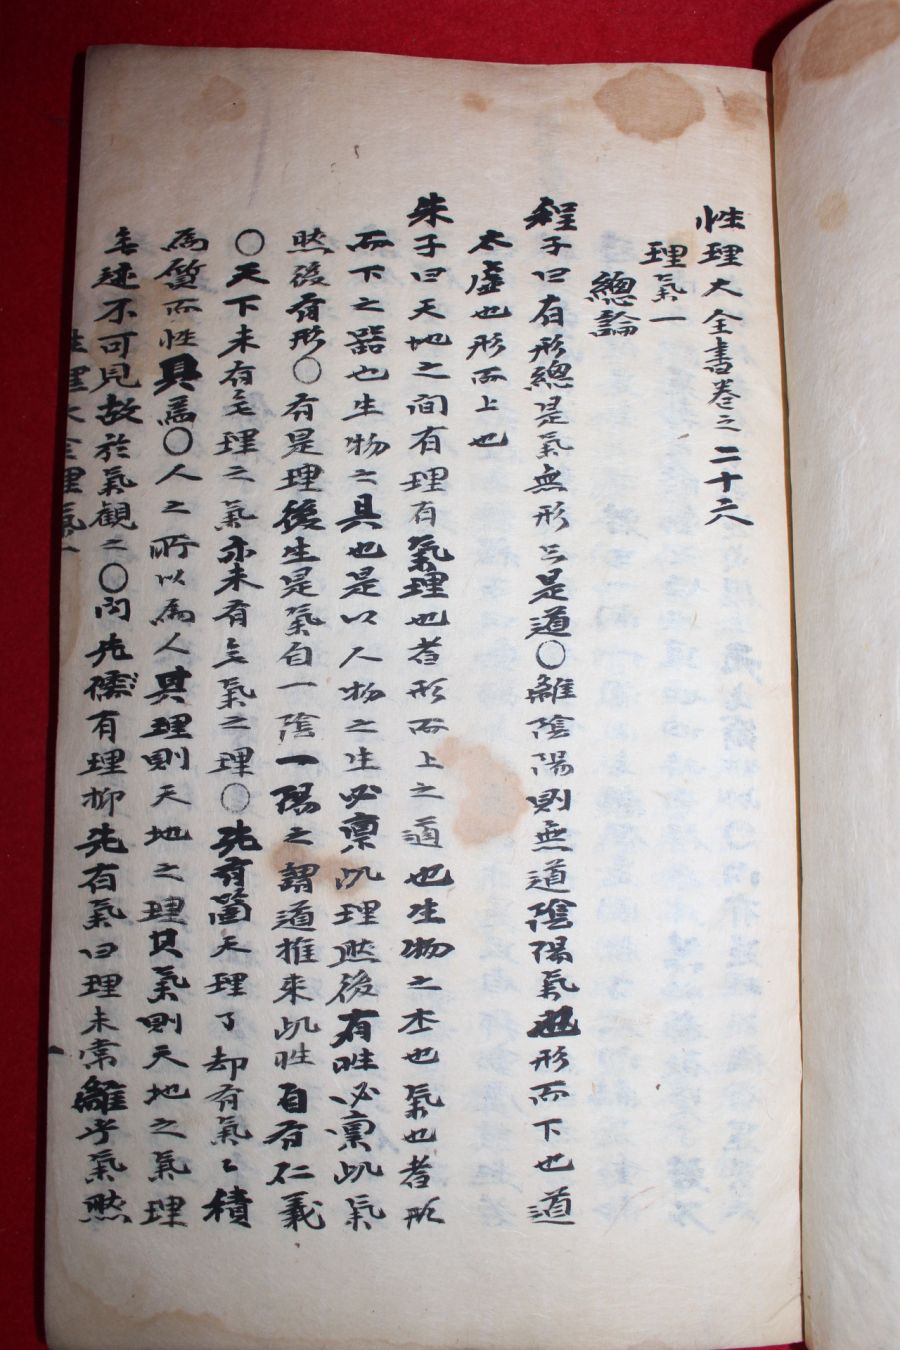 性理大全書卷之二十六
理氣一
總論
程子曰有形總是氣無形只是道○離陰陽則無道陰陽氣也形而下也道
太虛也形而上也
朱子曰天地之间有理有氣理也者形而上之道也生物之本也氣也者形
而下之器也生物之具也是以人物之生必禀此理然後有性必禀此氣
然後有形○有是理後生是氣自一陰一陽之謂道推來此性自有仁義
○天下未有无理之氣亦未有无氣之理○先有箇天理了却有氣〻積
為質而性具焉○人之所以為人其理則天地之理其氣則天地之氣理
無迹不可見故於氣観之○问先儒有理抑先有氣曰理未常離乎氣然
性理大全理氣一